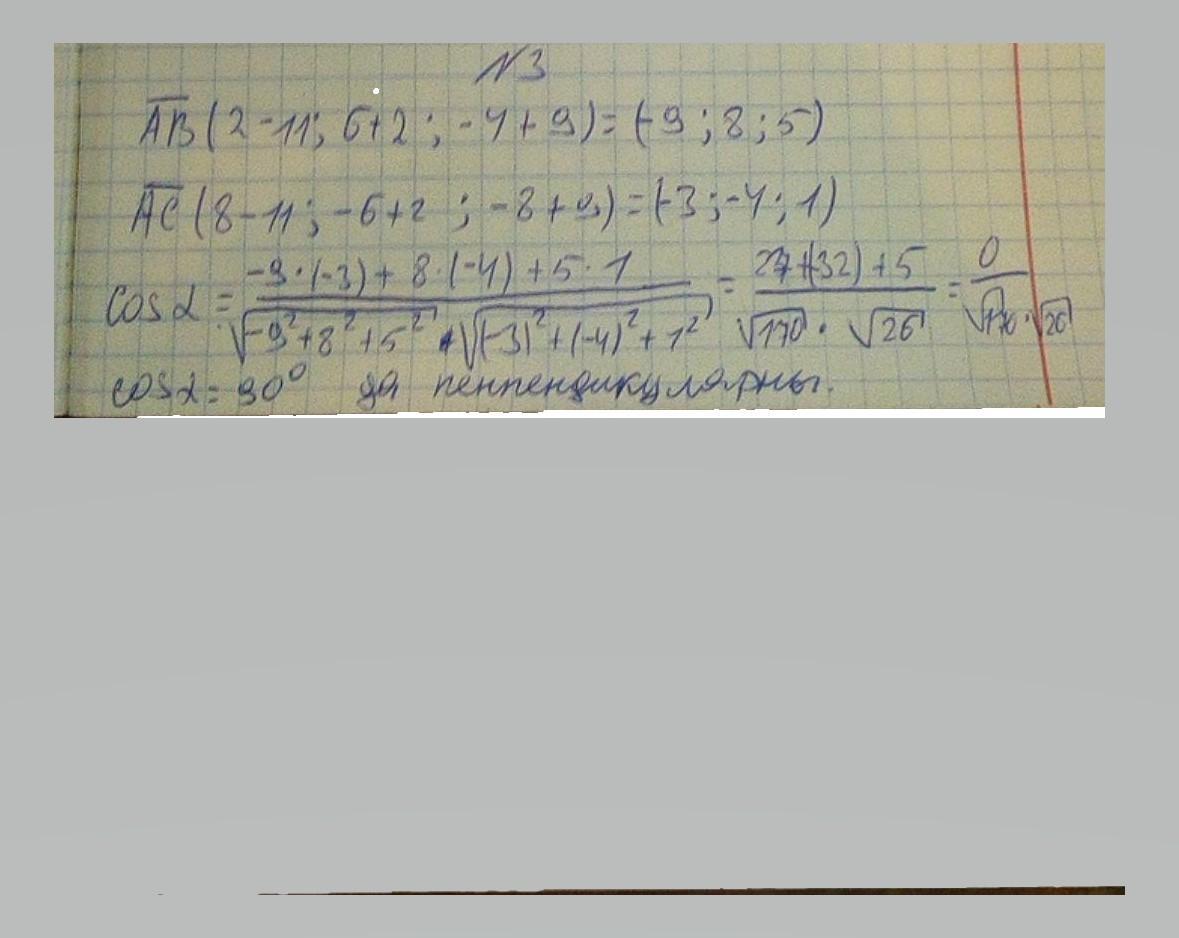 N3
AB(2-11; 6+2; -4+9)=(-9;8;5)
AC(8-11; -6+2; -8+9)=(-3;-4;1)
cosα = (-9·(-3)+8·(-4)+5·1)/(√(-9²+8²+5²)·√((-3)²+(-4)²+1²)) = (27+(-32)+5)/(√170·√26) = 0/(√170·√26)
cosα = 90° да пенпендикулярны.